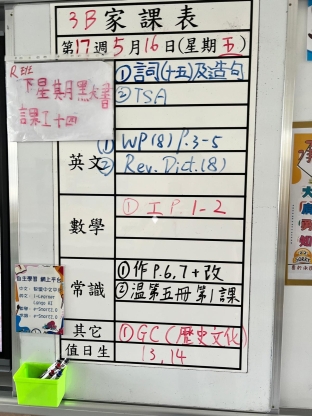 3B家課表
第17週5月16日(星期五)
REE
下星期默書
課工十四
①詞(十五)及造句
②TSA
英文
① WP(8) P.3-5
② Rev. Dict.(8)
數學
① 工 P. 1-2
常識
①作P.6,7+改
②溫第五冊第1課
其它
①GC(歷史文化)
值日生
13,14
自主學習 網上平台